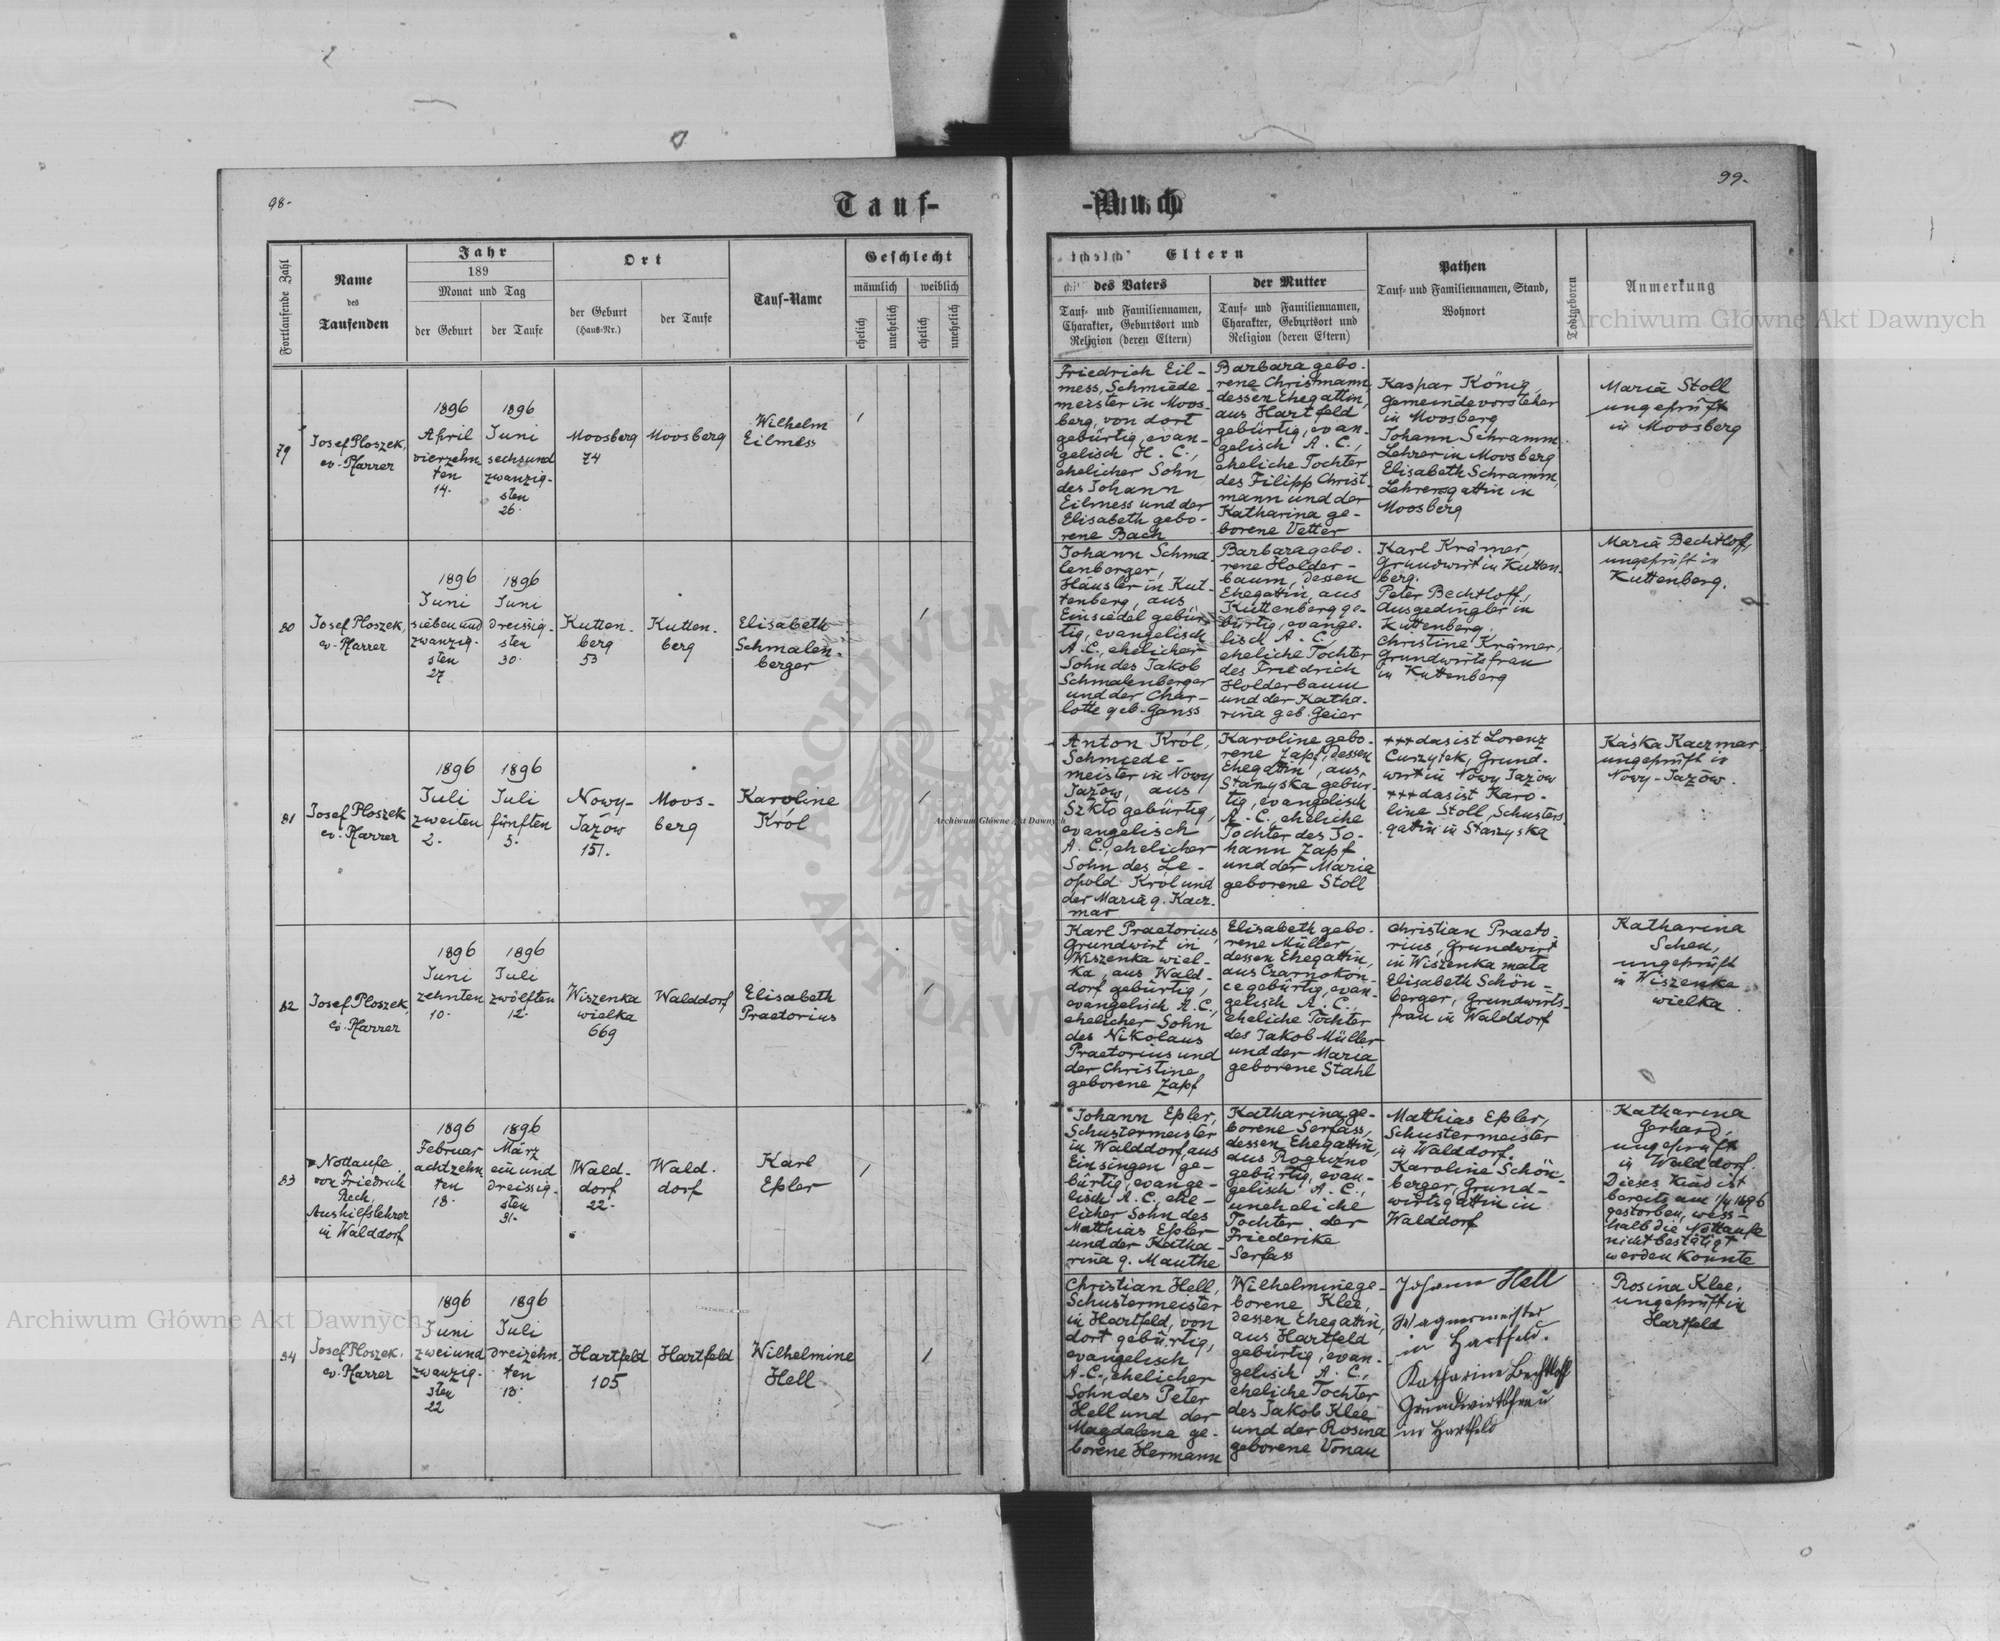 98.
Tauf-
Fortlaufende Zahl
Name
des
Taufenden
Jahr
189
Monat und Tag
der Geburt
der Taufe
Ort
der Geburt
(Haus-Nr.)
der Taufe
Tauf-Name
Geschlecht
männlich
weiblich
ehelich
unehelich
ehelich
unehelich
79
Josef Ploszek,
ev. Pfarrer
1896
April
vierzehn
ten
14.
1896
Juni
sechsund
zwanzig-
sten
26.
Moosberg
74
Moosberg
Wilhelm
Eilmess
80
Josef Ploszek,
ev. Pfarrer
1896
Juni
sieben und
zwanzig-
sten
27
1896
Juni
dreissig-
sten
30.
Kutten-
berg
53
Kutten-
berg
Elisabeth
Schmalen-
berger
81
Josef Ploszek
ev. Pfarrer
1896
Juli
zweiten
2.
1896
Juli
fünften
5.
Nowy-
Jazow
151.
Moos-
berg
Karoline
Król
82
Josef Ploszek,
ev. Pfarrer
1896
Juni
zehnten
10.
1896
Juli
zwölften
12.
Wiszenka
wielka
669
Walddorf
Elisabeth
Praetorius
83
Nottaufe
von Friedrich
Rech,
Aushilfslehrer
in Walddorf
1896
Februar
achtzehn
ten
18.
1896
März
ein und
dreissig-
sten
31.
Wald-
dorf
22.
Wald-
dorf
Karl
Eßler
84
Josef Ploszek,
ev. Pfarrer
1896
Juni
zwei und
zwanzig-
sten
22
1896
Juli
dreizehn
ten
13.
Hartfeld
105
Hartfeld
Wilhelmine
Hell
99.
-Buch
Eltern
des Vaters
Tauf- und Familiennamen,
Charakter, Geburtsort und
Religion (deren Eltern)
der Mutter
Tauf- und Familiennamen,
Charakter, Geburtsort und
Religion (deren Eltern)
Pathen
Tauf- und Familiennamen, Stand,
Wohnort
Todtgeboren
Anmerkung
Friedrich Eil-
mess, Schmiede-
meister in Moos-
berg, von dort
gebürtig, evan-
gelisch H. C.,
ehelicher Sohn
des Johann
Eilmess und der
Elisabeth gebo-
rene Bach
Barbara gebo-
rene Christmann,
dessen Ehegattin,
aus Hartfeld
gebürtig, evan-
gelisch A. C.,
eheliche Tochter
des Filipp Christ-
mann und der
Katharina ge-
borene Vetter
Kaspar König,
Gemeindevorsteher
in Moosberg
Johann Schramm
Lehrer in Moosberg
Elisabeth Schramm,
Lehrersgattin in
Moosberg
Maria Stoll
ungeprüft
in Moosberg
Johann Schma-
lenberger,
Häusler in Kut-
tenberg, aus
Einsiedel gebür-
tig, evangelisch
A. C., ehelicher
Sohn des Jakob
Schmalenberger
und der Char-
lotte geb. Ganss
Barbara gebo-
rene Holder-
baum, dessen
Ehegattin, aus
Kuttenberg ge-
bürtig, evange-
lisch A. C.,
eheliche Tochter
des Friedrich
Holderbaum
und der Katha-
rina geb. Geier
Karl Krämer,
Grundwirt in Kutten-
berg.
Peter Bechtloff,
Ausgedingler in
Kuttenberg,
Christine Krämer,
Grundwirtsfrau
in Kuttenberg
Maria Bechtloff,
ungeprüft in
Kuttenberg.
Anton Król,
Schmiede-
meister in Nowy
Jazow, aus
Szkło gebürtig,
evangelisch
A. C., ehelicher
Sohn des Le-
opold Król und
der Maria g. Kacz-
mar
Karoline gebo-
rene Zapf, dessen
Ehegattin, aus
Starzyska gebür-
tig, evangelisch
A. C., eheliche
Tochter des Jo-
hann Zapf
und der Maria
geborene Stoll
+++ das ist Lorenz
Curzytek, Grund-
wirt in Nowy Jazow
+++ das ist Karo-
line Stoll, Schusters-
gattin in Starzyska
Káska Kaczmar
ungeprüft in
Nowy-Jazow.
Karl Praetorius,
Grundwirt in
Wiszenka wiel-
ka, aus Wald-
dorf gebürtig,
evangelisch A. C.,
ehelicher Sohn
des Nikolaus
Praetorius und
der Christine
geborene Zapf
Elisabeth gebo-
rene Müller,
dessen Ehegattin,
aus Czarnokon-
ce gebürtig, evan-
gelisch A. C.,
eheliche Tochter
des Jakob Müller
und der Maria
geborene Stahl
Christian Praeto-
rius, Grundwirt
in Wiszenka mała
Elisabeth Schön-
berger, Grundwirts-
frau in Walddorf
Katharina
Scheu,
ungeprüft
in Wiszenka
wielka
Johann Eßler,
Schustermeister
in Walddorf, aus
Einsingen ge-
bürtig, evange-
lisch A. C., ehe-
licher Sohn des
Matthias Eßler
und der Katha-
rina g. Mauthe
Katharina ge-
borene Serfass,
dessen Ehegattin,
aus Rogużno
gebürtig, evan-
gelisch A. C.,
uneheliche
Tochter der
Friederike
Serfass
Matthias Eßler,
Schustermeister
in Walddorf.
Karoline Schön-
berger, Grund-
wirtsgattin in
Walddorf
Katharina
Gerhard,
ungeprüft
in Walddorf.
Dieses Kind ist
bereits am 1/4 1896
gestorben, wess-
halb die Nottaufe
nicht bestätigt
werden konnte
Christian Hell,
Schustermeister
in Hartfeld, von
dort gebürtig,
evangelisch
A. C., ehelicher
Sohn des Peter
Hell und der
Magdalena ge-
borene Hermann
Wilhelmine ge-
borene Klee,
dessen Ehegattin,
aus Hartfeld
gebürtig, evan-
gelisch A. C.,
eheliche Tochter
des Jakob Klee
und der Rosina
geborene Vonau
Johann Hell
Wagnermeister
in Hartfeld.
Katharina Bechtloff
Grundwirtsfrau
in Hartfeld
Rosina Klee,
ungeprüft in
Hartfeld
Archiwum Główne Akt Dawnych
Archiwum Główne Akt Dawnych
Archiwum Główne Akt Dawnych
ARCHIWUM
AKT DAWNYCH